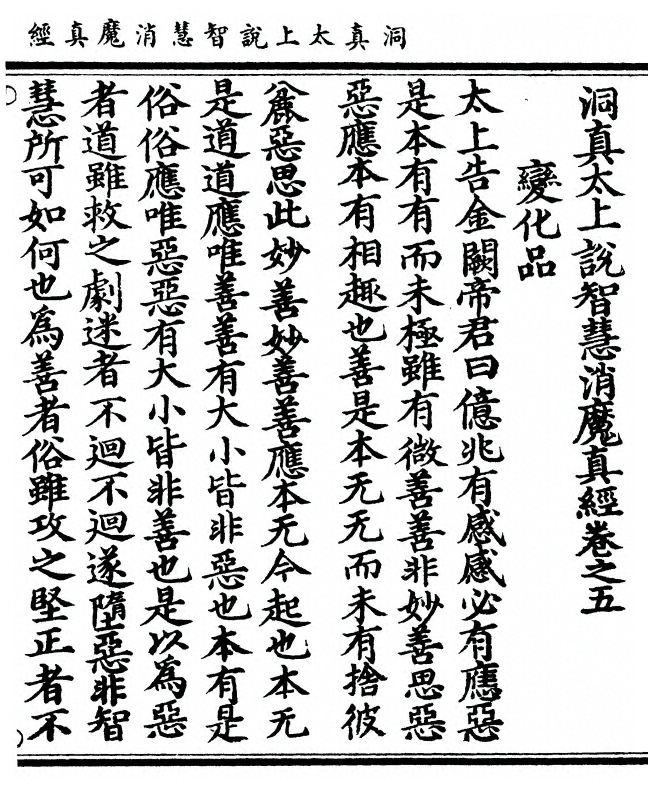 洞真太上說智慧消魔真經
洞真太上說智慧消魔真經卷之五
變化品
太上告金闕帝君曰億兆有感感必有應惡
是本有有而未極雖有微善善非妙善思惡
惡應本有相趣也善是本无无而未有捨彼
麁惡思此妙善妙善善應本无今起也本无
是道道應唯善善有大小皆非惡也本有是
俗俗應唯惡惡有大小皆非善也是以爲惡
者道雖救之劇迷者不迴不迴遂墮惡非智
慧所可如何也爲善者俗雖攻之堅正者不